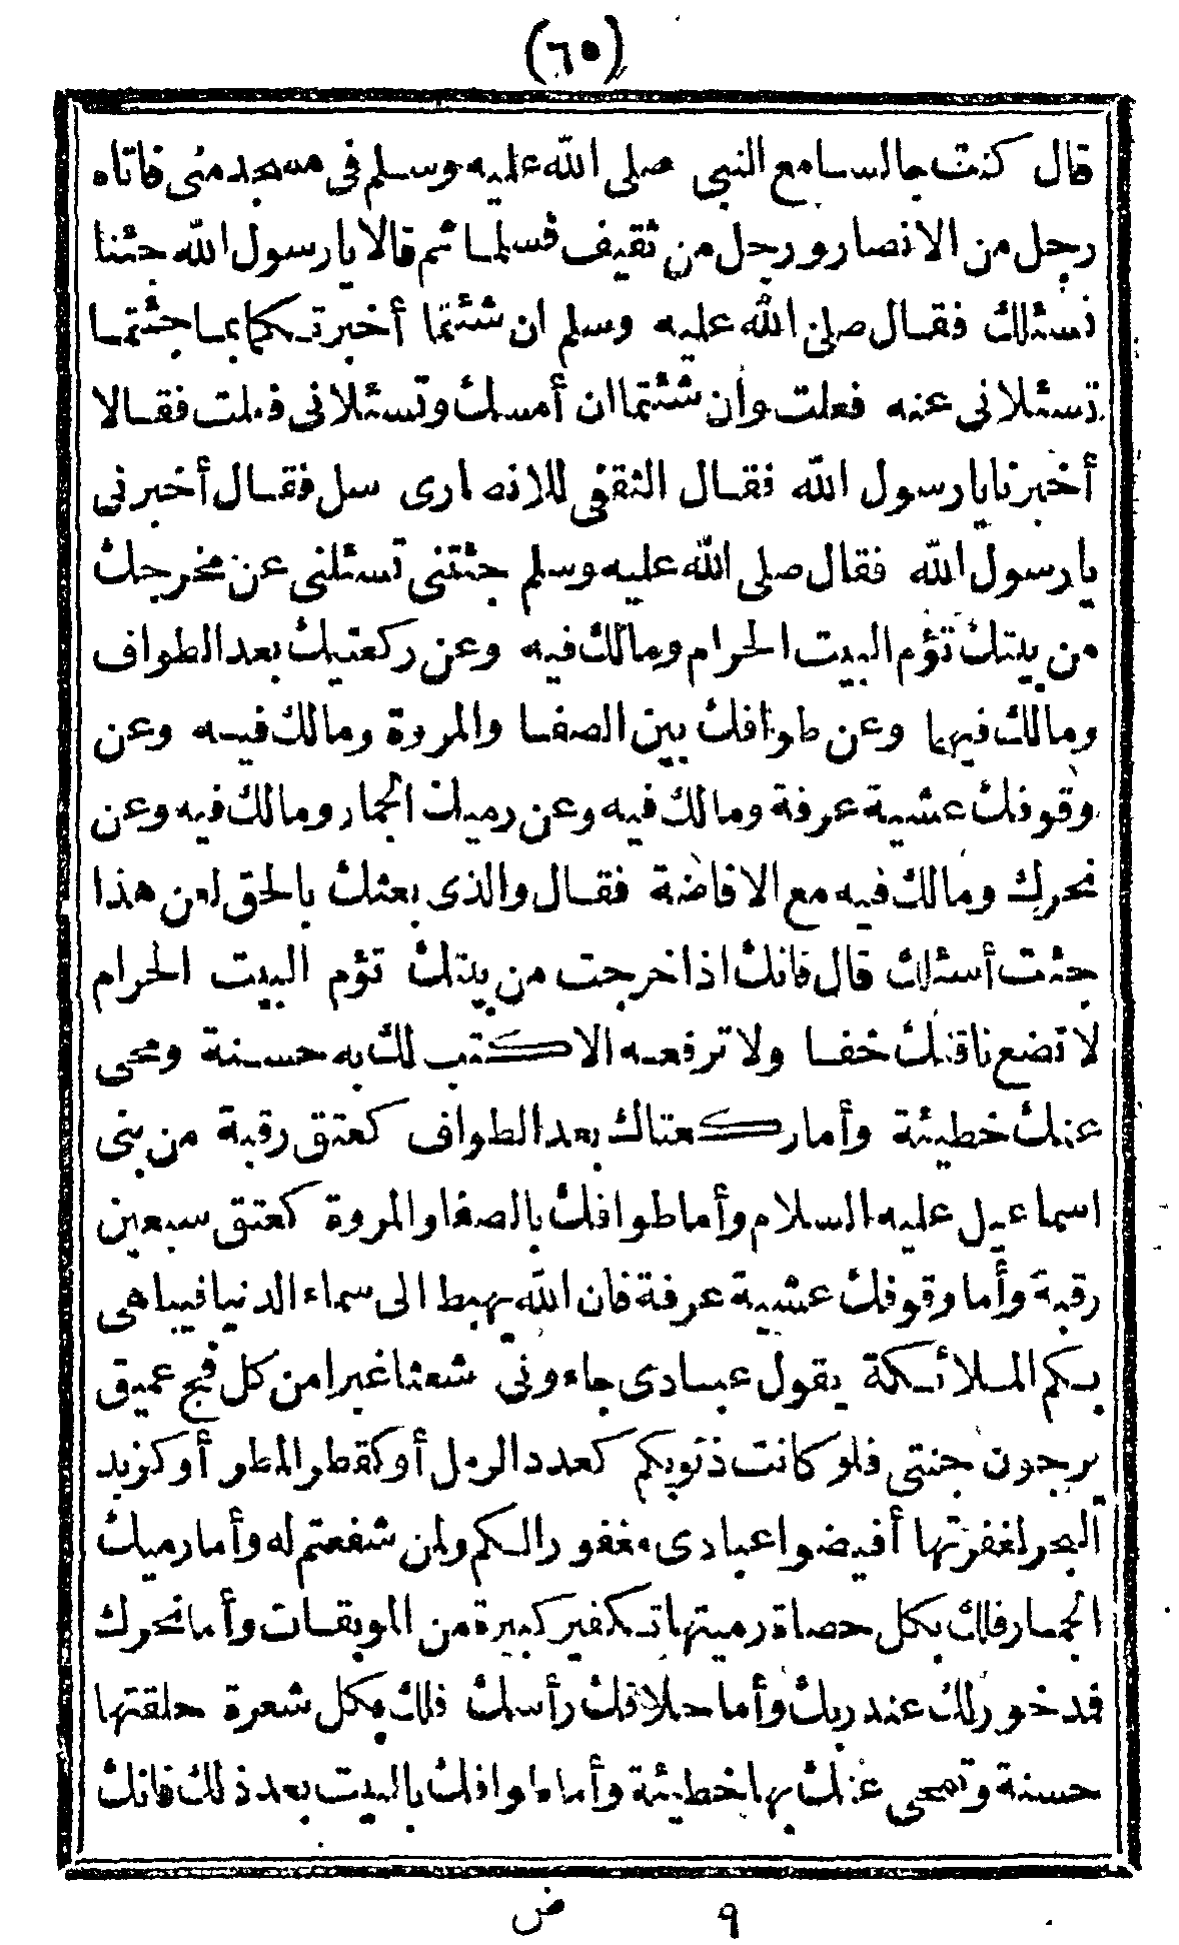 (٦٥)
قال كنت جالسا مع النبي صلى الله عليه وسلم فى مسجد منى فاتاه
رجل من الانصار ورجل من ثقيف فسلما ثم قالا يا رسول الله جئنا
نسئلك فقال صلى الله عليه وسلم ان شئتما أخبرتكما بما جئتما
تسئلانى عنه فعلت وان شئتما ان أمسك وتسئلانى فعلت فقالا
أخبرنا يا رسول الله فقال الثقفى للانصارى سل فقال أخبرنى
يا رسول الله فقال صلى الله عليه وسلم جئتنى تسئلنى عن مخرجك
من بيتك تؤم البيت الحرام ومالك فيه وعن ركعتيك بعد الطواف
ومالك فيهما وعن طوافك بين الصفا والمروة ومالك فيه وعن
وقوفك عشية عرفة ومالك فيه وعن رميك الجمار ومالك فيه وعن
نحرك ومالك فيه مع الافاضة فقال والذى بعثك بالحق لعن هذا
جئت أسئلك قال فانك اذا خرجت من بيتك تؤم البيت الحرام
لا تضع ناقتك خفا ولا ترفعه الا كتب لك به حسنة ومحى
عنك خطيئة وأما ركعتاك بعد الطواف كعتق رقبة من بنى
اسماعيل عليه السلام وأما طوافك بالصفا والمروة كعتق سبعين
رقبة وأما وقوفك عشية عرفة فان الله يهبط الى سماء الدنيا فيباهى
بكم الملائكة يقول عبادى جاءونى شعثا غبرا من كل فج عميق
يرجون جنتى فلو كانت ذنوبكم كعدد الرمل أو كقطر المطر أو كزبد
البحر لغفرتها أفيضوا عبادى مغفورا لكم ولمن شفعتم له وأما رميك
الجمار فلك بكل حصاة رميتها تكفير كبيرة من الموبقات وأما نحرك
فمدخور لك عند ربك وأما حلاقك رأسك فلك بكل شعرة حلقتها
حسنة وتمحى عنك بها خطيئة وأما طوافك بالبيت بعد ذلك فانك
٩ ض